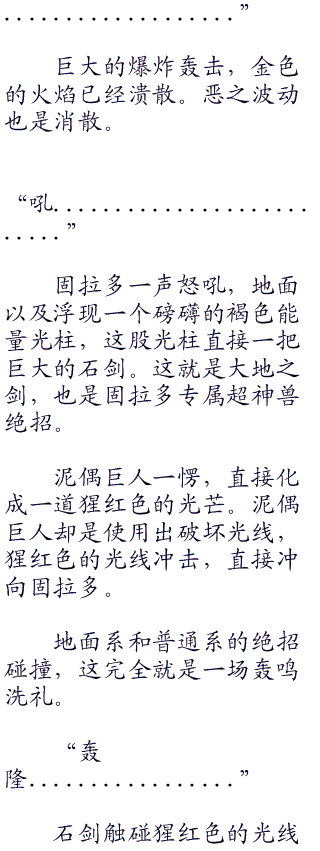 ....................”
巨大的爆炸轰击，金色
的火焰已经溃散。恶之波动
也是消散。
“吼......................
.....”
固拉多一声怒吼，地面
以及浮现一个磅礴的褐色能
量光柱，这股光柱直接一把
巨大的石剑。这就是大地之
剑，也是固拉多专属超神兽
绝招。
泥偶巨人一愣，直接化
成一道猩红色的光芒。泥偶
巨人却是使用出破坏光线，
猩红色的光线冲击，直接冲
向固拉多。
地面系和普通系的绝招
碰撞，这完全就是一场轰鸣
洗礼。
“轰
隆..................”
石剑触碰猩红色的光线